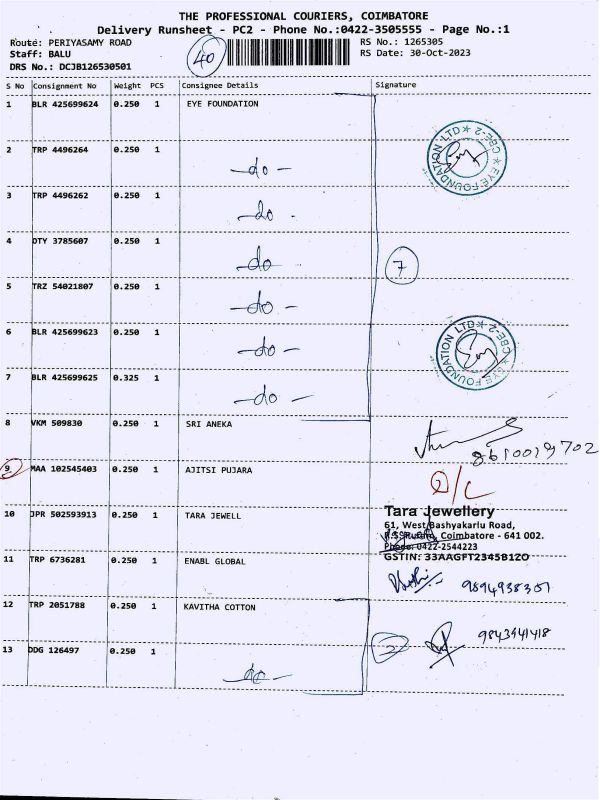 THE PROFESSIONAL COURIERS, COIMBATORE
Delivery Runsheet - PC2 - Phone No.:0422-3505555 - Page No.:1
Route: PERIYASAMY ROAD 40 RS No.: 1265305
Staff: BALU RS Date: 30-Oct-2023
DRS No.: DCJB126530501
S No Consignment No Weight PCS Consignee Details Signature
1 BLR 425699624 0.250 1 EYE FOUNDATION
EYE FOUNDATION LTD ★ CBE-2 ★
2 TRP 4496264 0.250 1 -do-
3 TRP 4496262 0.250 1 -do-
4 DTY 3785607 0.250 1 -do
7
5 TRZ 54021807 0.250 1 -do-
6 BLR 425699623 0.250 1 -do-
EYE FOUNDATION LTD ★ CBE-2 ★
7 BLR 425699625 0.325 1 -do-
8 VKM 509830 0.250 1 SRI ANEKA
8610019702
9 MAA 102545403 0.250 1 AJITSI PUJARA
10 JPR 502593913 0.250 1 TARA JEWELL
Tara Jewellery
61, West Bashyakarlu Road,
R.S.Puram, Coimbatore - 641 002.
Phone: 0422-2544223
GSTIN: 33AAGFT2345B1ZO
11 TRP 6736281 0.250 1 ENABL GLOBAL
9894938307
12 TRP 2051788 0.250 1 KAVITHA COTTON
2 9843941418
13 DDG 126497 0.250 1 -do-